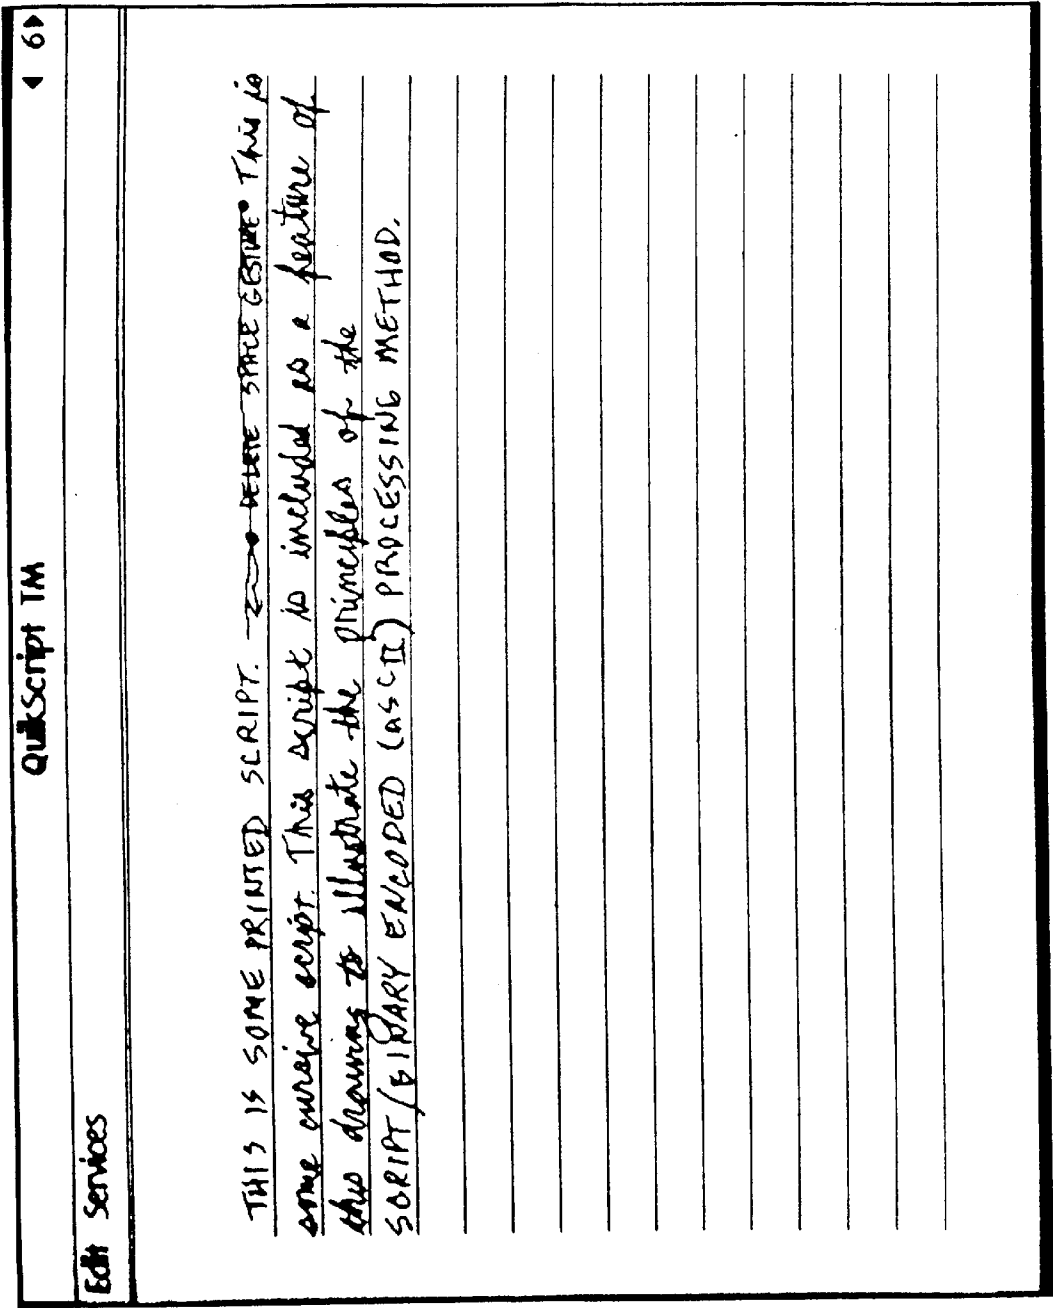 QuikScript TM
◀ 6▶
Edit Services
THIS IS SOME PRINTED SCRIPT. DELETE SPACE GESTURE This is
some cursive script. This script is included as a feature of
this drawing to illustrate the principles of the
SCRIPT/BINARY ENCODED (ASCII) PROCESSING METHOD.